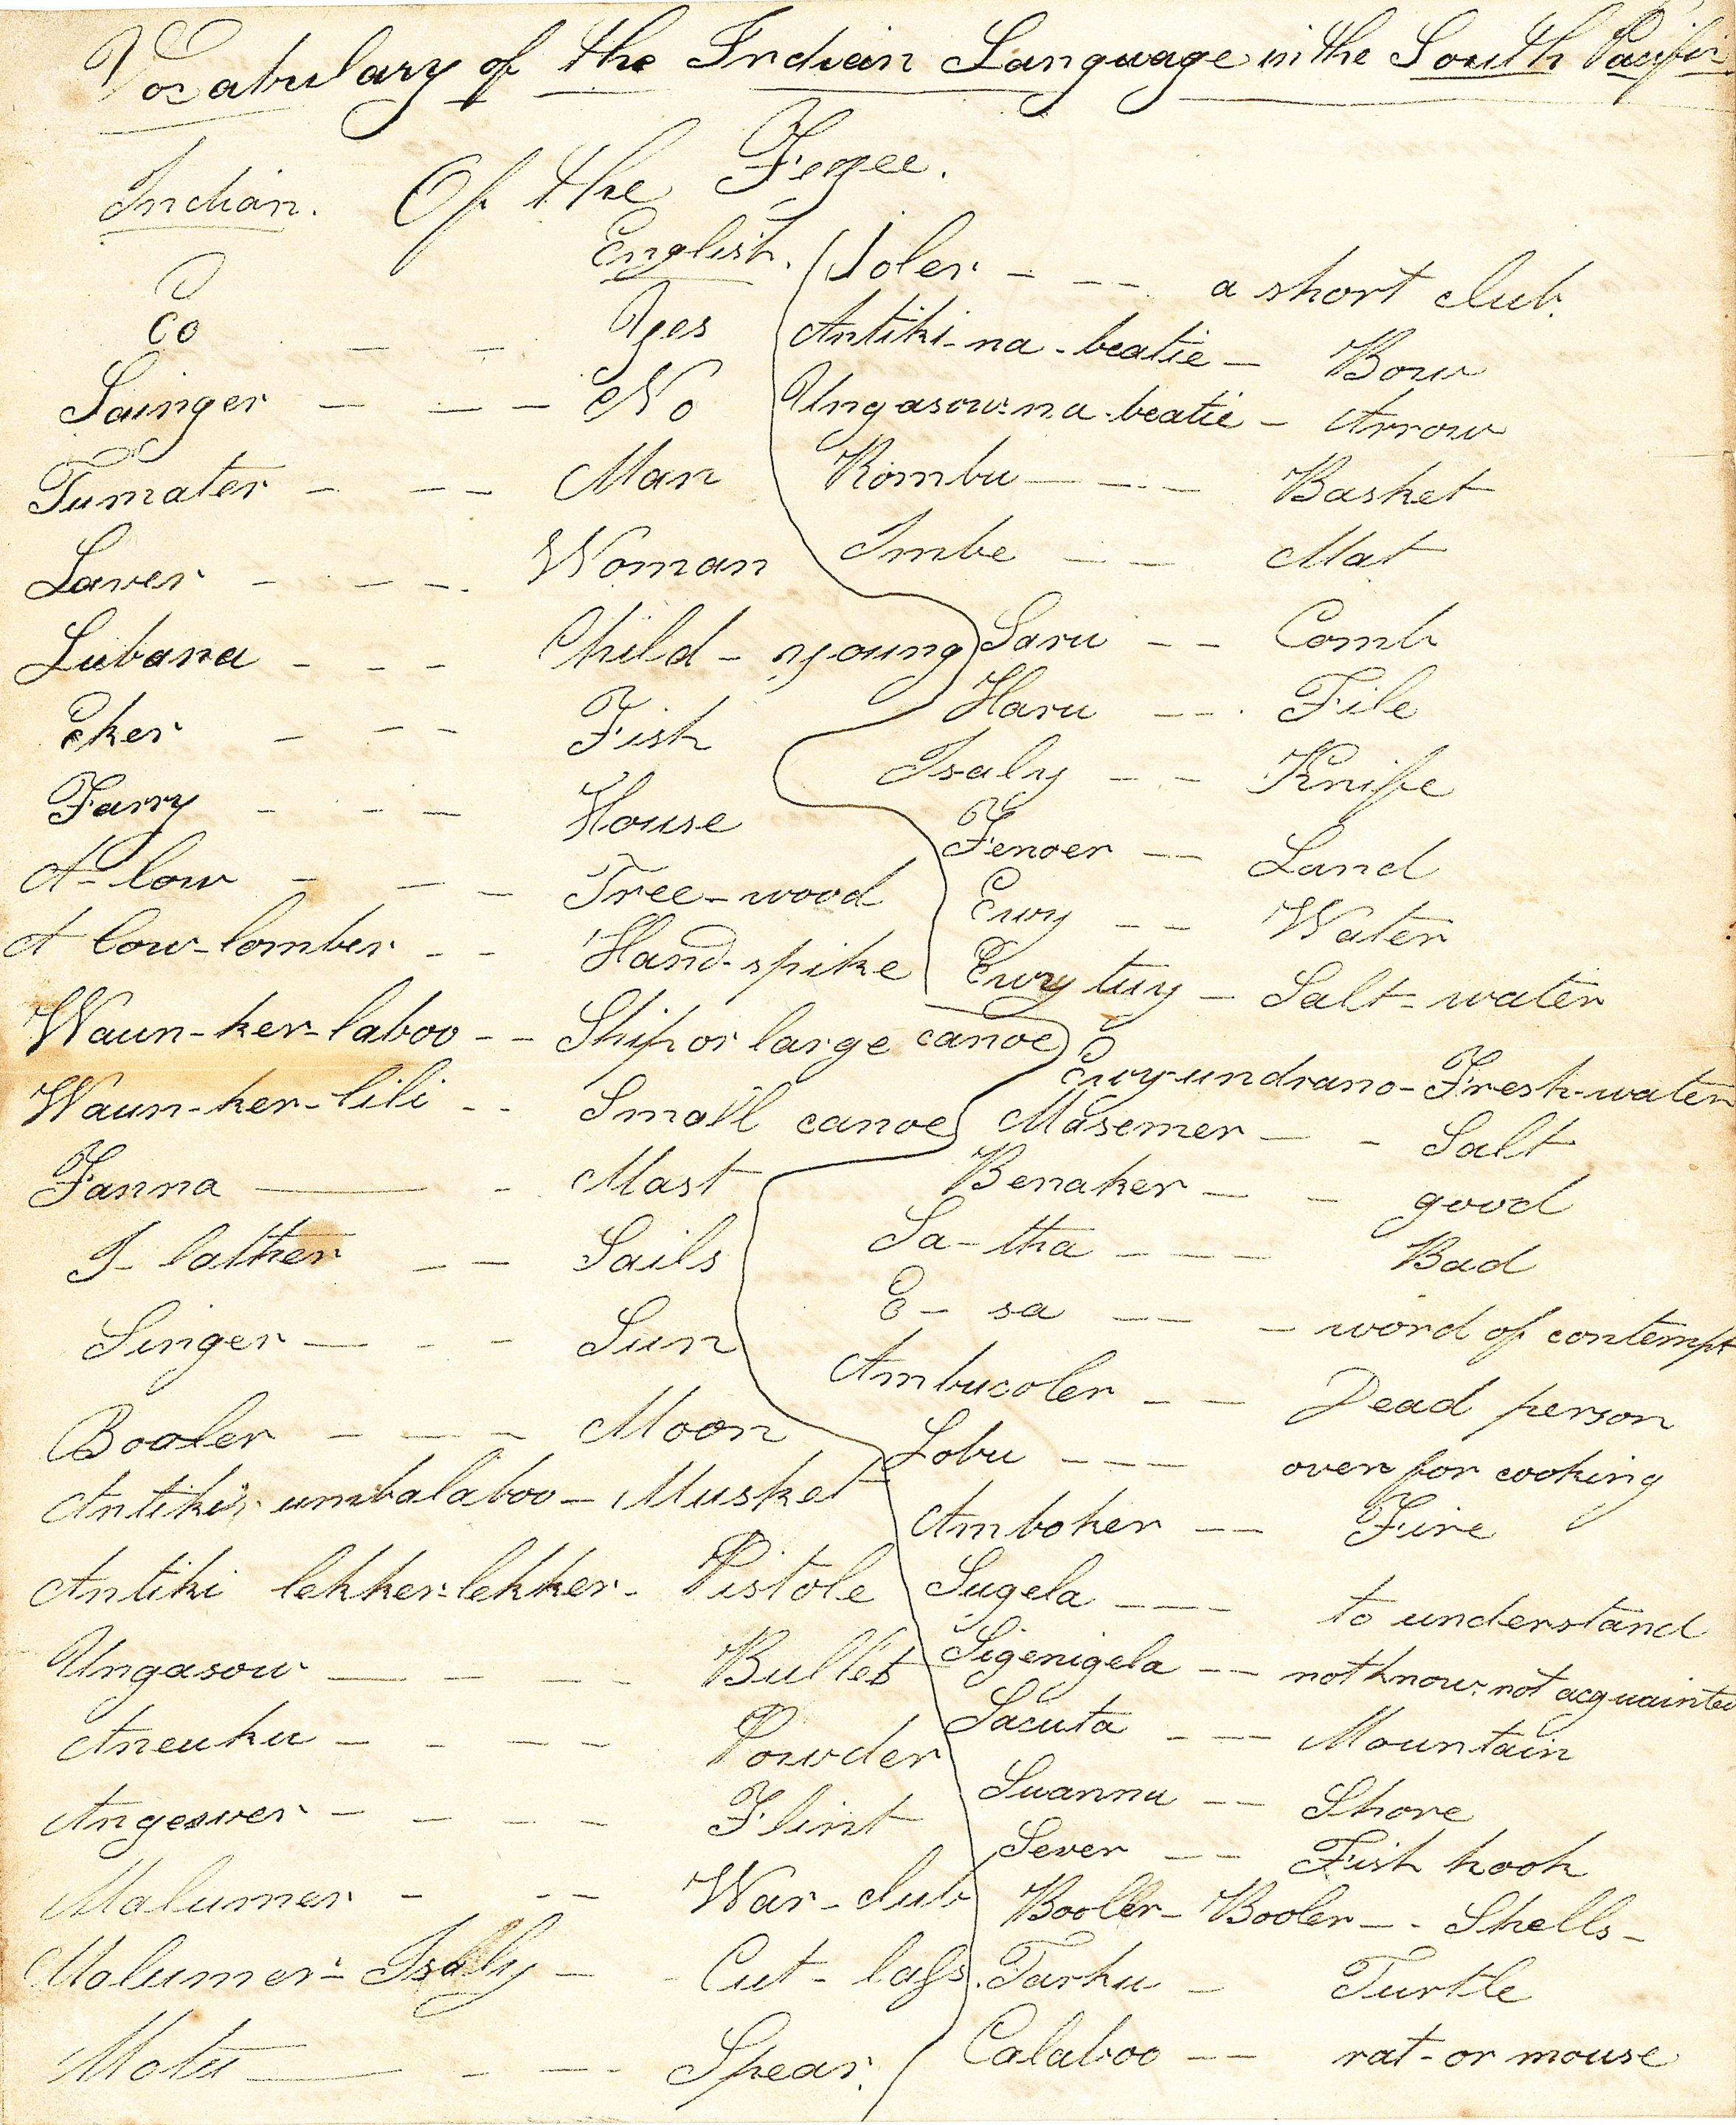 Vocabulary of the Indian Language in the South Pacific
Of the Fegee.
Indian. English.
Eo - - Yes
Sainger - - - No
Tumater - - - Man
Lawer - - - Woman
Lubana - - - Child - young
Eker - - - Fish
Farry - - - House
A - low - - - Tree - wood
A low - lomber - - Hand - spike
Waun - ker - laboo - - Ship or large canoe
Waun - ker - lili - - Small canoe
Fanna - - Mast
I - lather - - Sails
Singer - - - Sun
Booler - - - Moon
Antiki umbalaboo - Musket
Antiki lekker-lekker - Pistole
Ungasow - - - - Bullet
Aneuku - - - - Powder
Angeswer - - - - Flint
Malumer - - - War - club
Malumer - Isaly - - Cut - lass.
Motu - - - Spear.
Joler - - - a short club.
Antiki - na - beatie - Bow
Ungasow - na - beatie - Arrow
Kombu - - - Basket
Imbe - - - Mat
Saru - - Comb
Haru - - - File
Isaly - - Knife
Fenoer - - Land
Ewy - - Water
Ewy tuy - Salt - water
Ewy-undrano - Fresh-water
Masemer - - Salt
Benaker - - good
Sa - tha - - - Bad
E - sa - - - word of contempt
Ambucoler - - - Dead person
Lobu - - - oven for cooking
Amboker - - Fire
Sugela - - - to understand
Sigenigela - - not know, not acquainted
Sacuta - - - Mountain
Suannu - - Shore
Sever - - Fish hook
Booller - Booler - - Shells -
Tarku - Turtle
Calaboo - - rat - or mouse